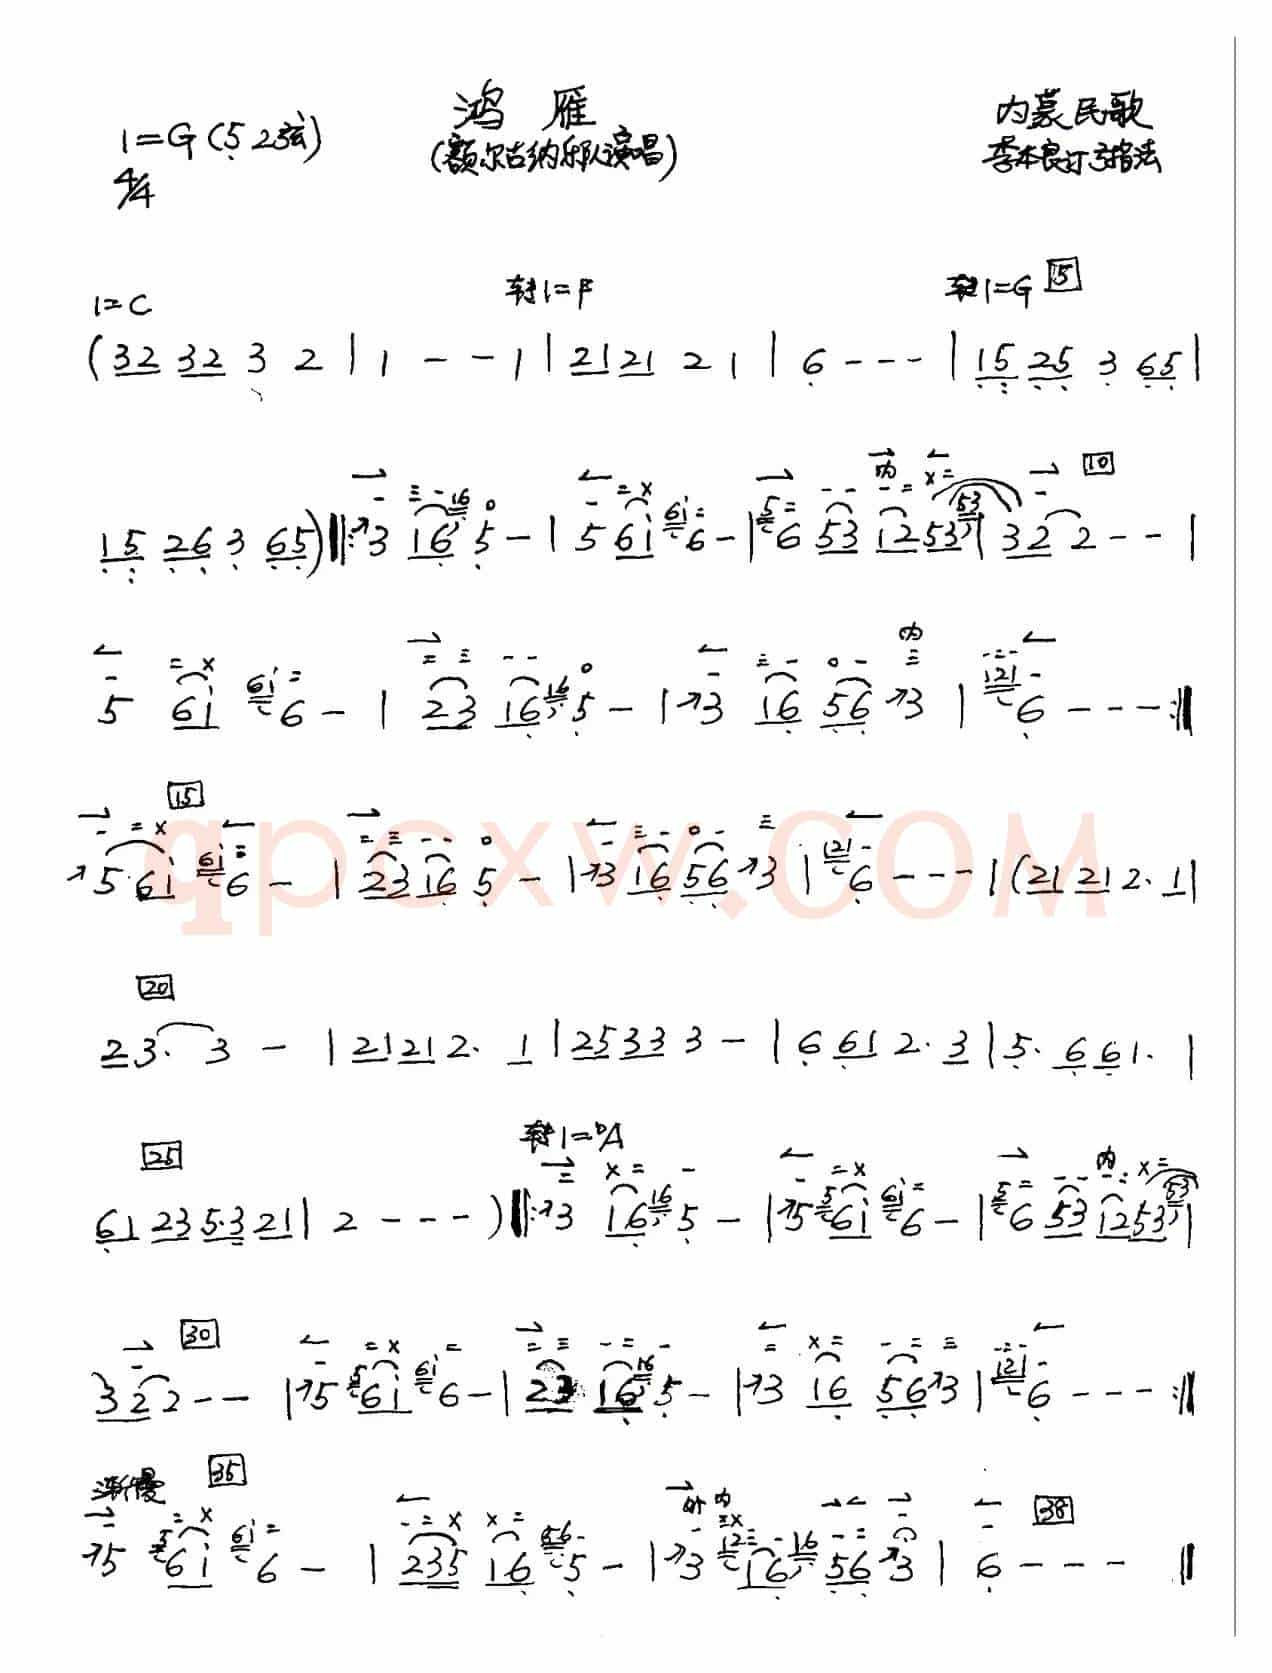 鸿雁
1=G(5̣ 2弦) (额尔古纳乐队演唱) 内蒙民歌
4/4 李本良订弓指法
1=C 转1=F 转1=G 5
(32 32 3 2 | 1 - - 1 | 21 21 2 1 | 6 - - - | 15 25 3 65 |
内 10
15 26 3 65)‖: 3 16 5 - | 5 61 6 - | 6 53 1253 | 32 2 - - |
内
5 61 6 - | 23 16 5 - | 3 16 56 3 | 6 - - - :‖
15
5 61 6 - | 23 16 5 - | 3 16 56 3 | 6 - - - | (21 21 2. 1 |
qpcxw.com
20
23. 3 - | 21 21 2. 1 | 25 33 3 - | 6 61 2. 3 | 5. 6 61. |
25 转1=♭A
内
61 23 5.3 21 | 2 - - - )‖: 3 16 5 - | 5 61 6 - | 6 53 1253 |
30
32 2 - - | 5 61 6 - | 23 16 5 - | 3 16 56 3 | 6 - - - :‖
渐慢 35 外 内 38
5 61 6 - | 235 16 5 - | 3 16 56 3 | 6 - - - ‖